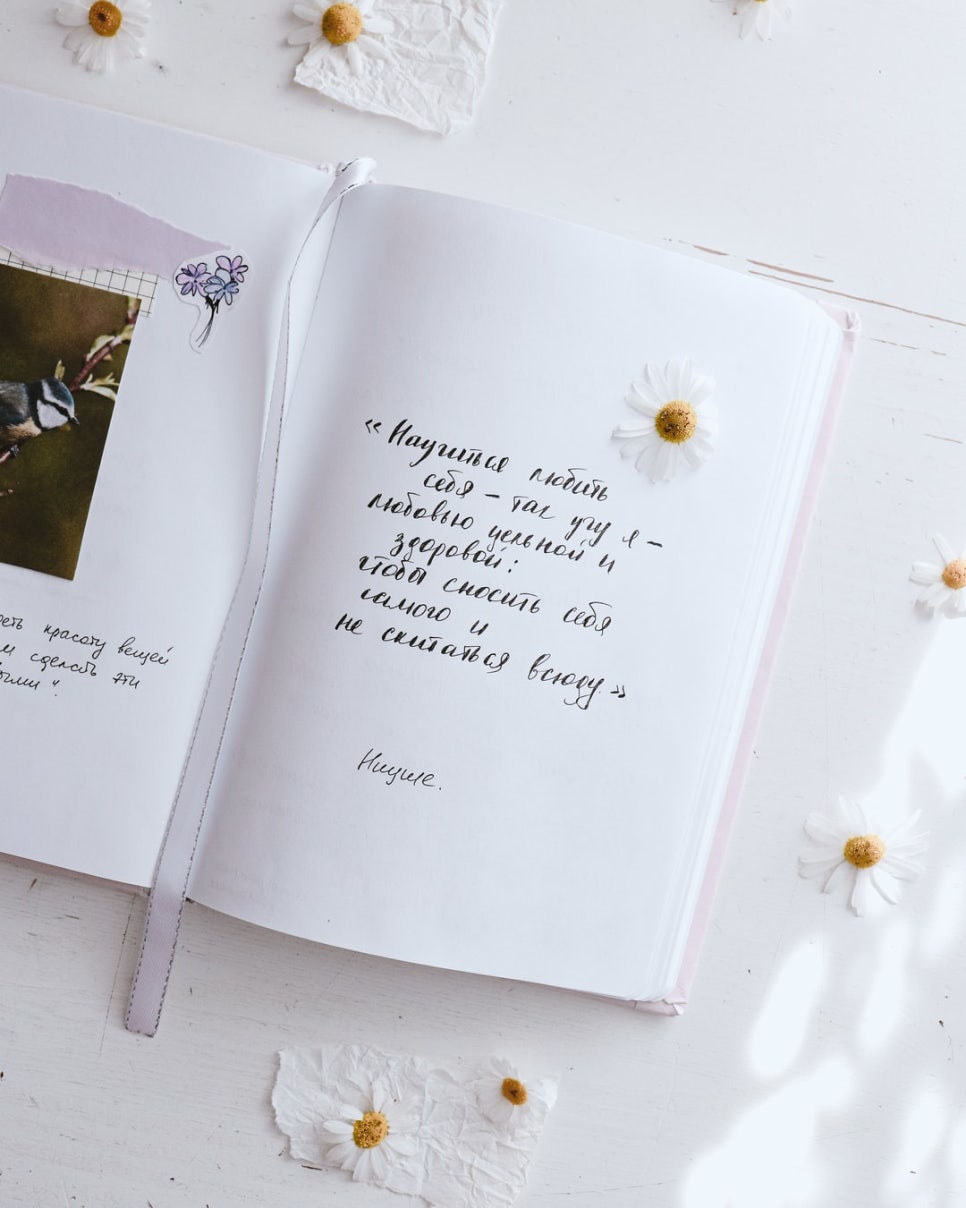 еть красоту вещей
м сделать эти
ыми".
«Научиться любить
себя – так учу я –
любовью цельной и
здоровой:
чтобы сносить себя
самого и
не скитаться всюду.»
Ницше.